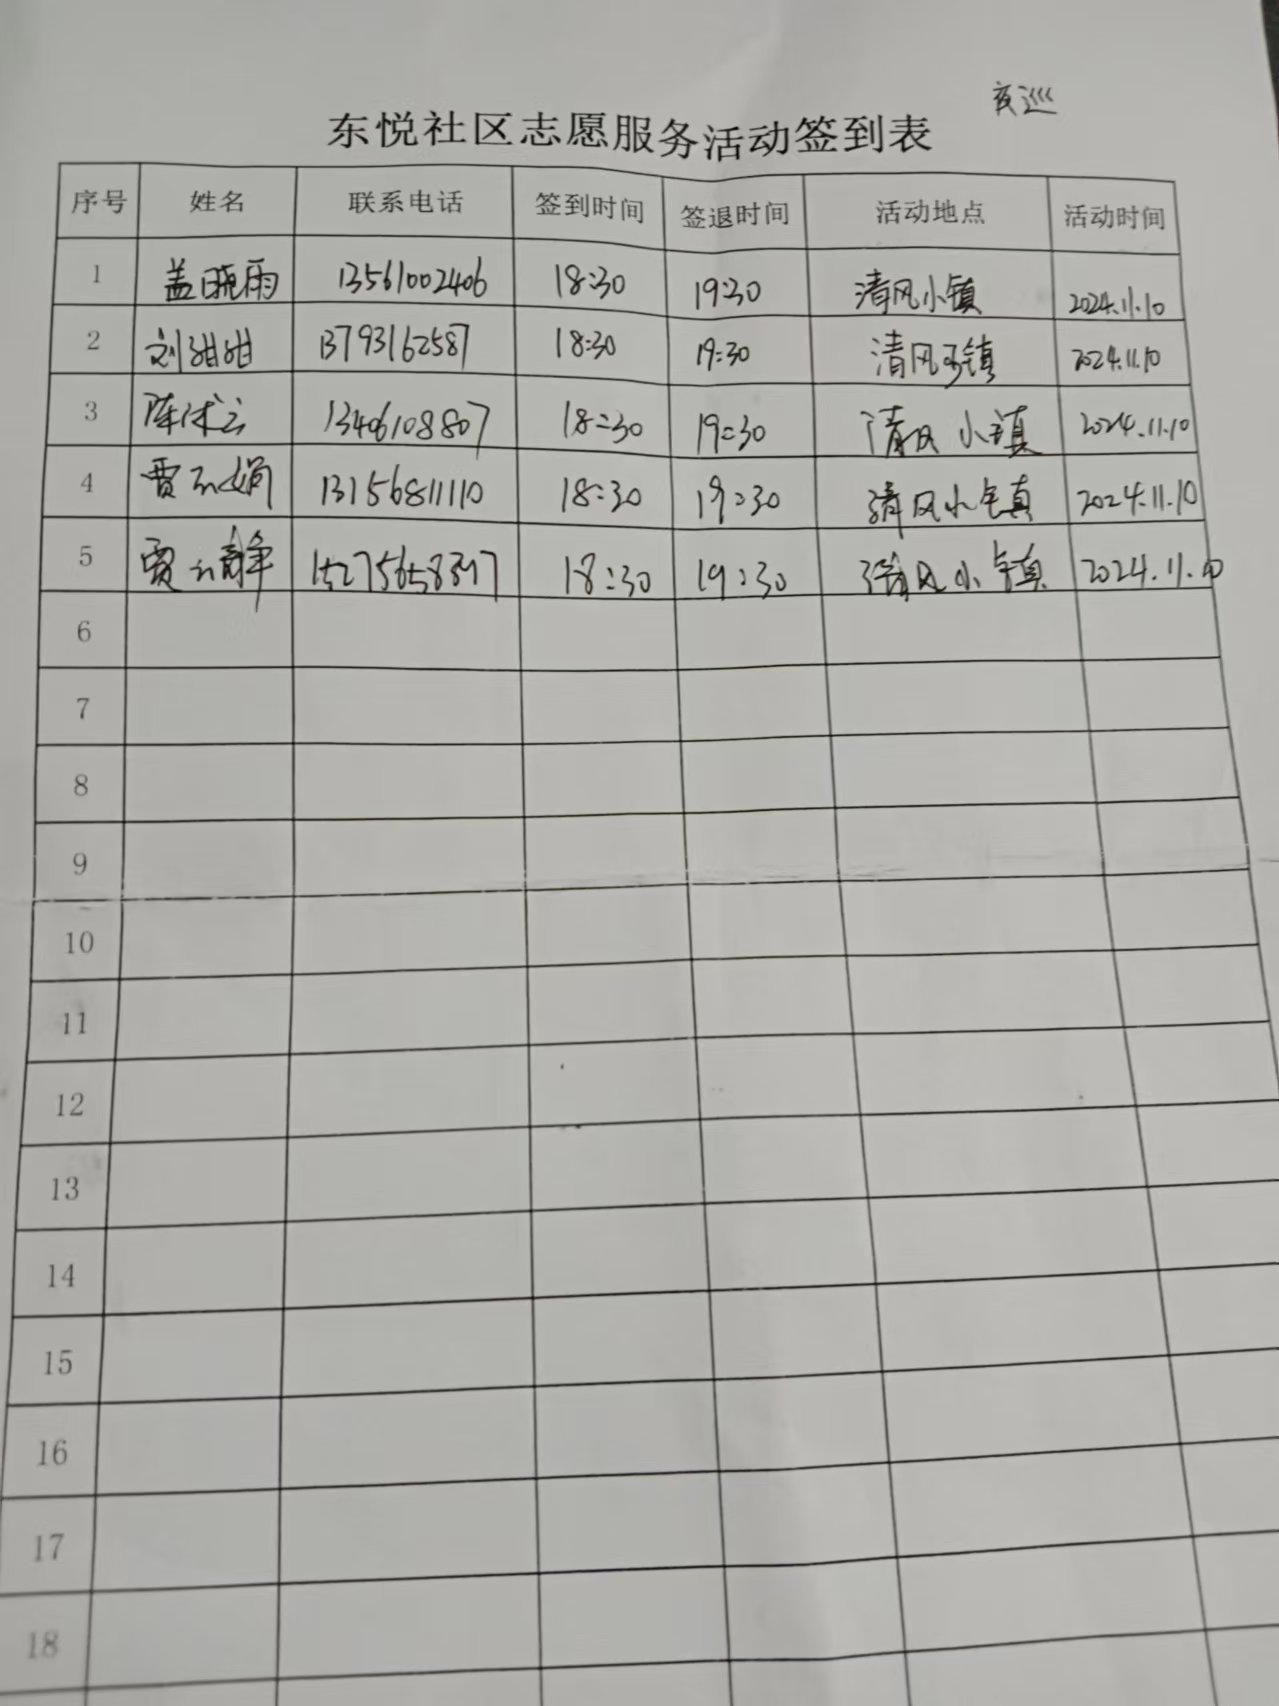 夜巡
东悦社区志愿服务活动签到表
序号 姓名 联系电话 签到时间 签退时间 活动地点 活动时间
1 盖晓雨 13561002406 18:30 19:30 清风小镇 2024.11.10
2 刘甜甜 13793162587 18:30 19:30 清风小镇 2024.11.10
3 陈 13406108807 18:30 19:30 清风小镇 2024.11.10
4 贾 娟 13156811110 18:30 19:30 清风小镇 2024.11.10
5 贾 静 18:30 19:30 清风小镇 2024.11.10
6
7
8
9
10
11
12
13
14
15
16
17
18